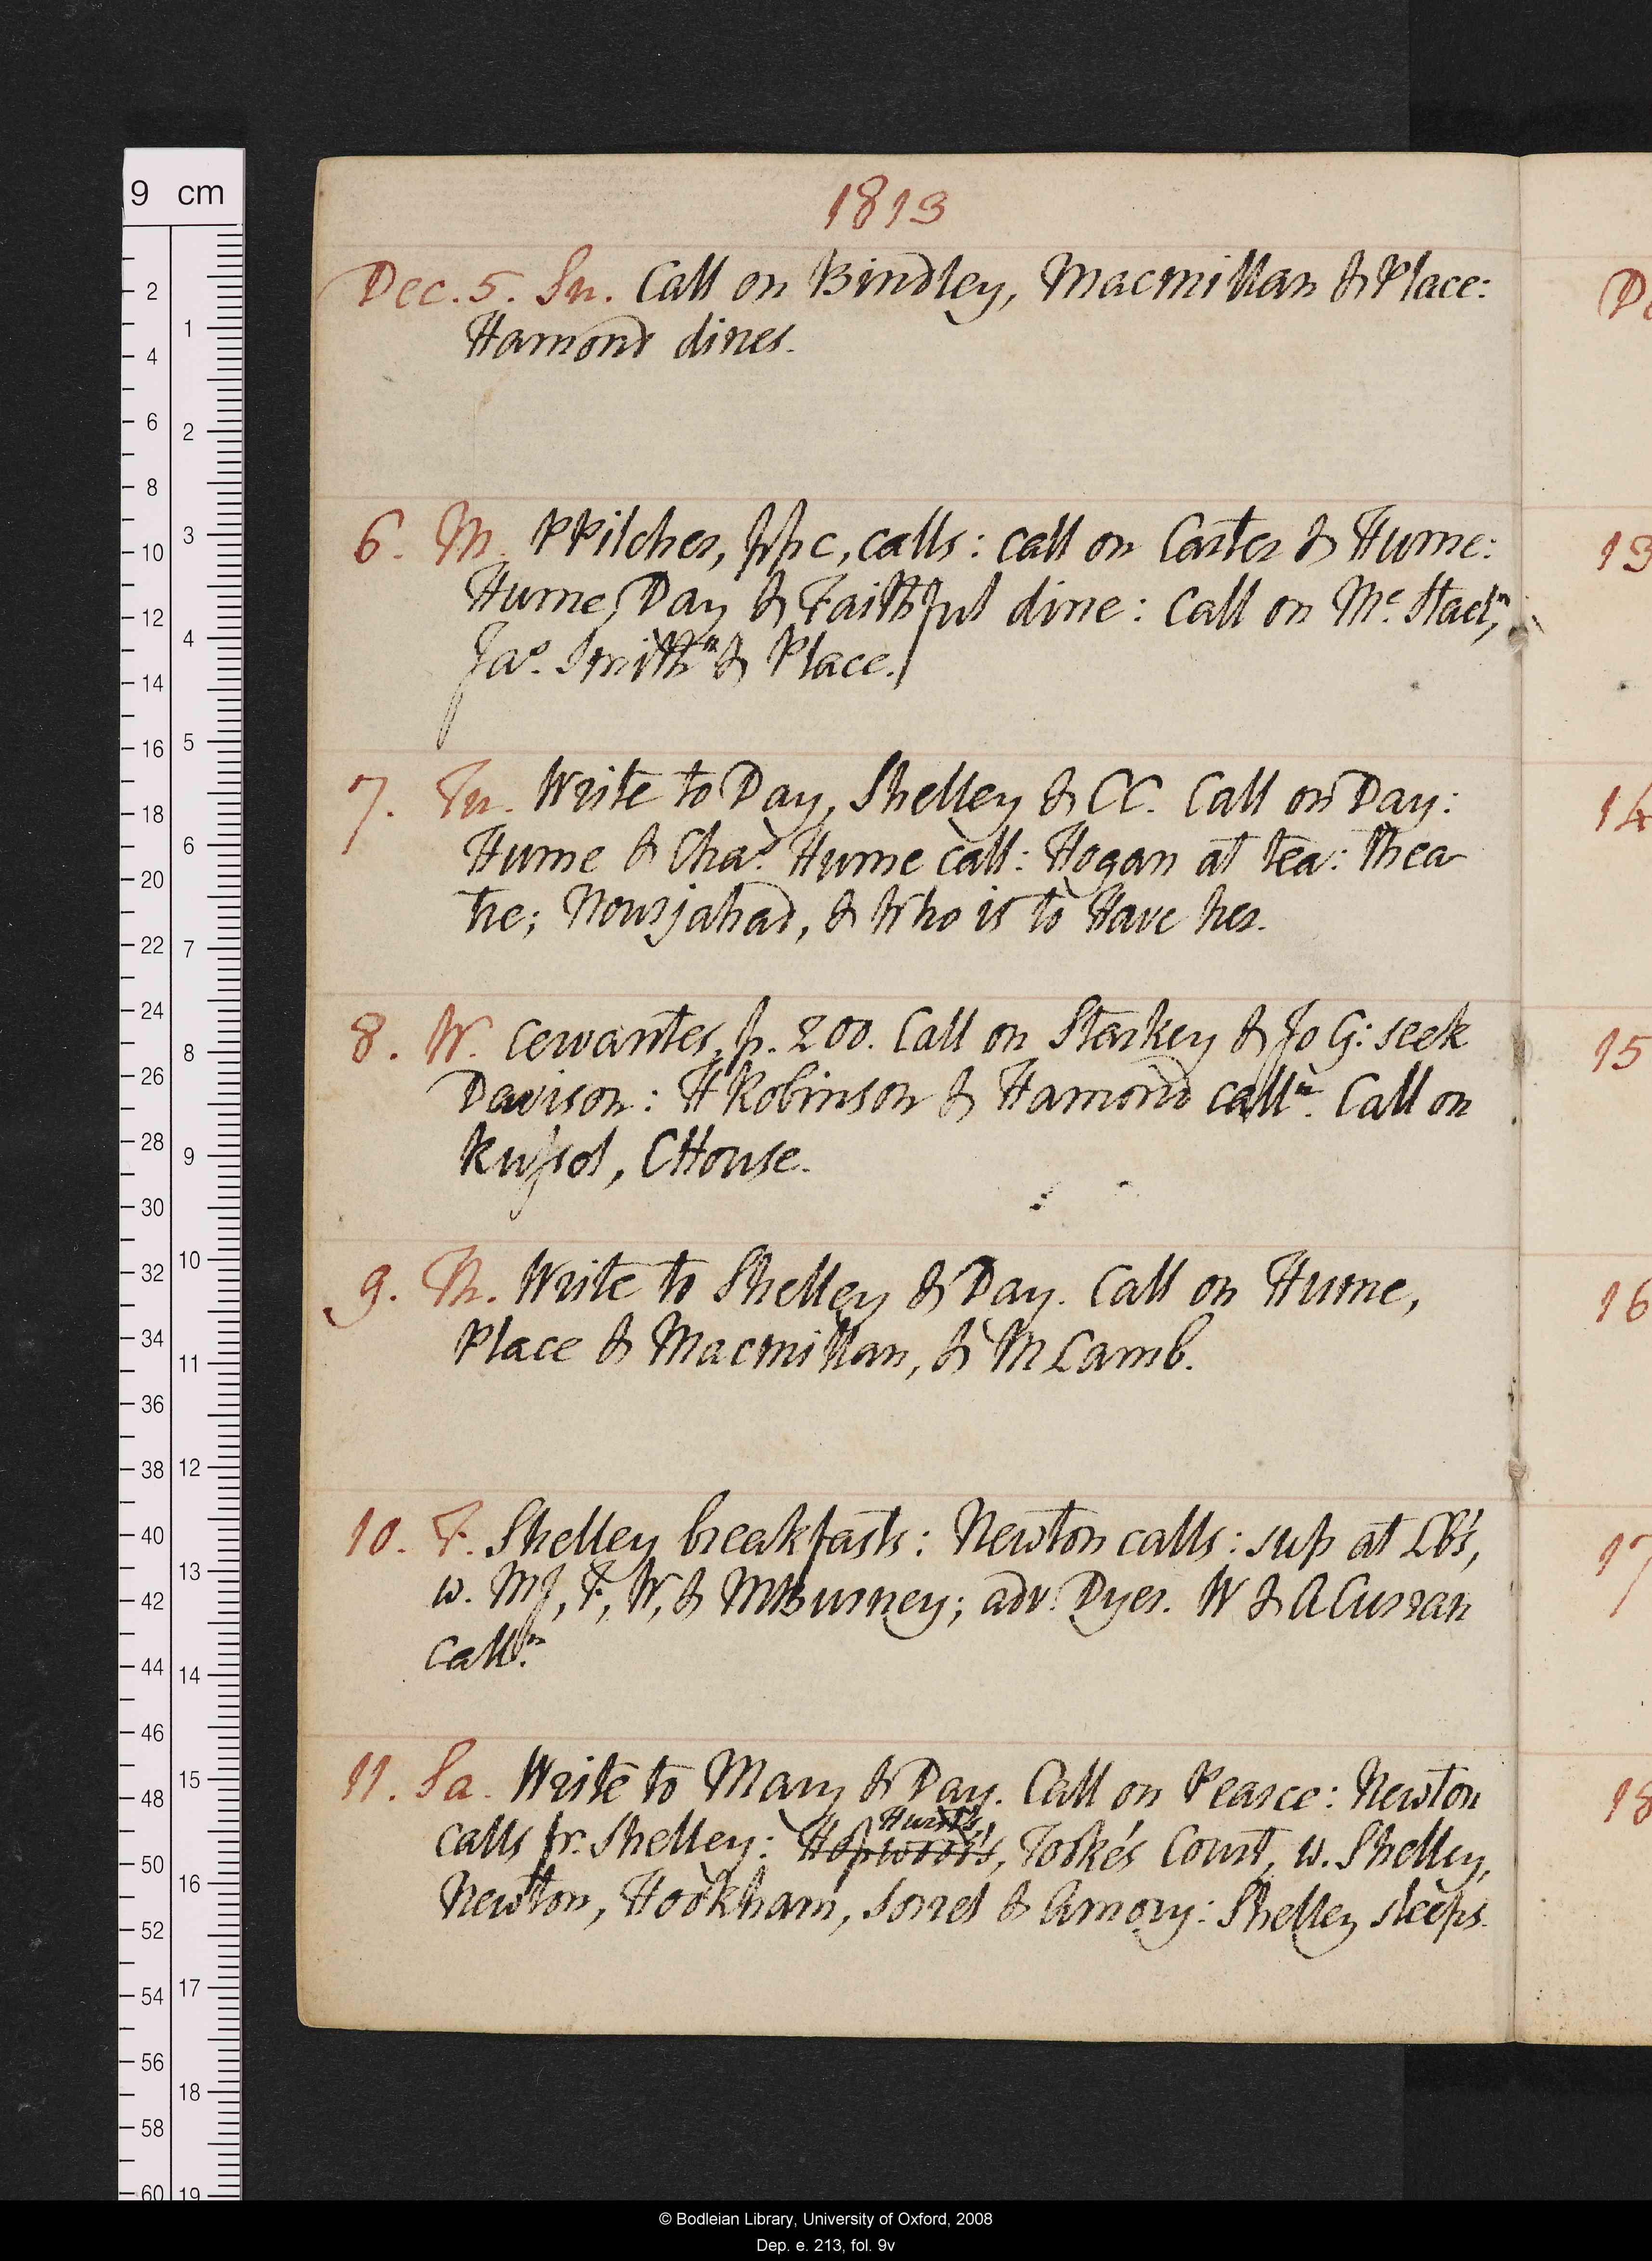 1813
Dec. 5. Su. Call on Bindley, Macmillan & Place:
Hamond dines.
6. M. PPilcher, ppc, calls: call on Carter & Hume:
Hume, Day & Faithful dine: call on Mc. Stael,ⁿ
Jas. Smithⁿ & Place.
7. Tu. Write to Day, Shelley & CC. Call on Day:
Hume & Chas. Hume call: Hogan at tea: thea
tre; Nourjahad, & Who is to Have her.
8. W. Cervantes, p. 200. Call on Starkey & Jo G: seek
Davison: HRobinson & Hamond callⁿ. Call on
Kussel, CHouse.
9. Th. Write to Shelley & Day. Call on Hume,
Place & Macmillan, & MLamb.
10. F. Shelley breakfasts: Newton calls: sup at LB's,
w. MJ, F, W, & MBurney; adv. Dyer. W & ACurran
callⁿ.
11. Sa. Write to Mary & Day. Call on Pearce: Newton
Hurst's,
calls fr. Shelley: Hopwood's, Tooke's Court, w. Shelley,
Newton, Hookham, Sorrel & Amory: Shelley sleeps.
D
13
14
15
16
17
18
9 cm
2
4
6
8
10
12
14
16
18
20
22
24
26
28
30
32
34
36
38
40
42
44
46
48
50
52
54
56
58
60
1
2
3
4
5
6
7
8
9
10
11
12
13
14
15
16
17
18
19
© Bodleian Library, University of Oxford, 2008
Dep. e. 213, fol. 9v